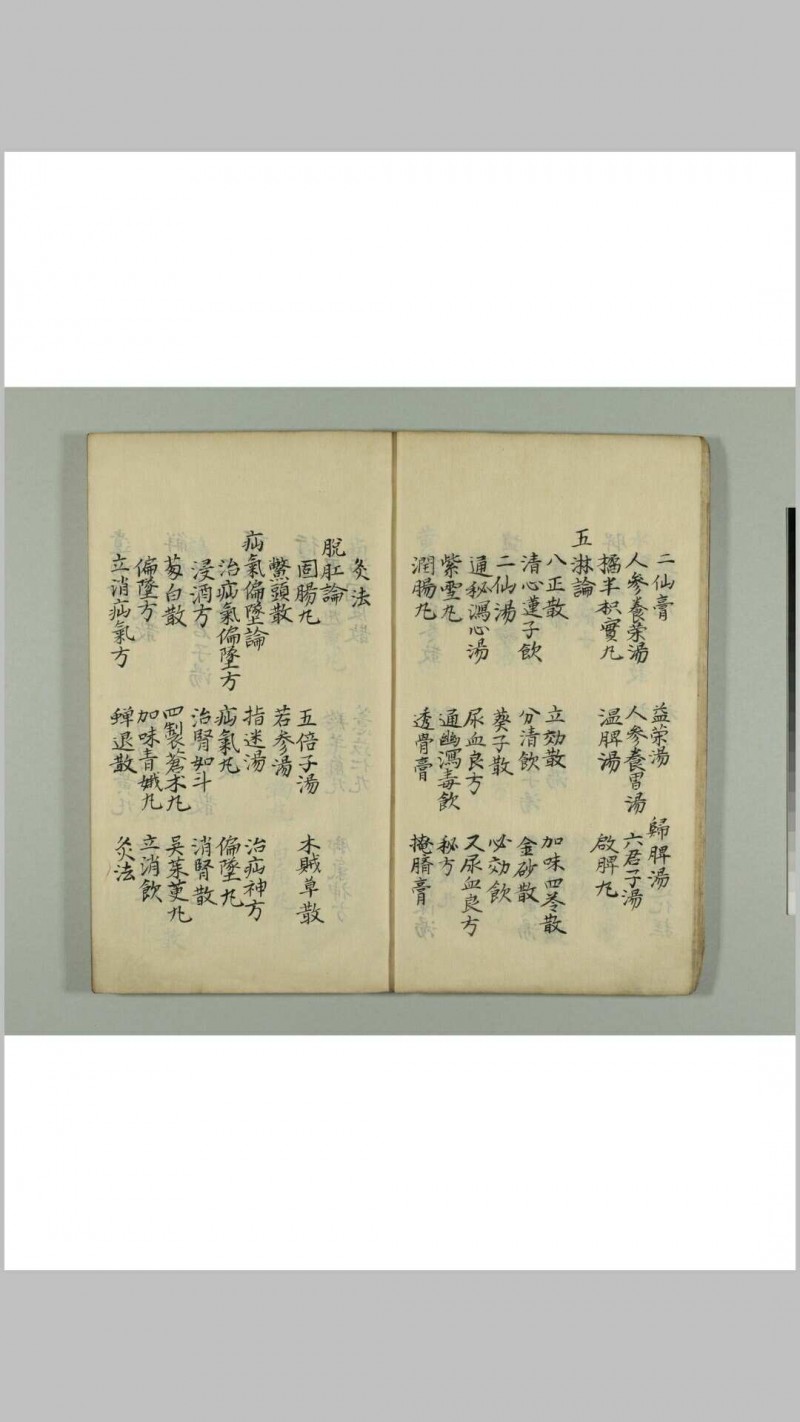 二仙膏 益荣湯 歸脾湯
人參養栄湯 人參養胃湯 六君子湯
橘半枳實丸 温脾湯 啟脾丸
五淋論
八正散 立効散 加味四苓散
清心蓮子飲 分清飲 金砂散
二仙湯 葵子散 必効飲
通秘瀉心湯 尿血良方 又尿血良方
紫雪丸 通幽瀉毒飲 秘方
潤腸丸 透骨膏 掩臍膏
灸法
脫肛論
固腸丸 五倍子湯 木賊草散
鱉頭散 若參湯
疝氣偏墜論
治疝氣偏墜方 指迷湯 治疝神方
浸酒方 疝氣丸 偏墜丸
葱白散 治腎如斗 消腎散
偏墜方 四製蒼术丸 吳茱萸丸
立消疝氣方 加味青娥丸 立消飲
蟬退散 灸法